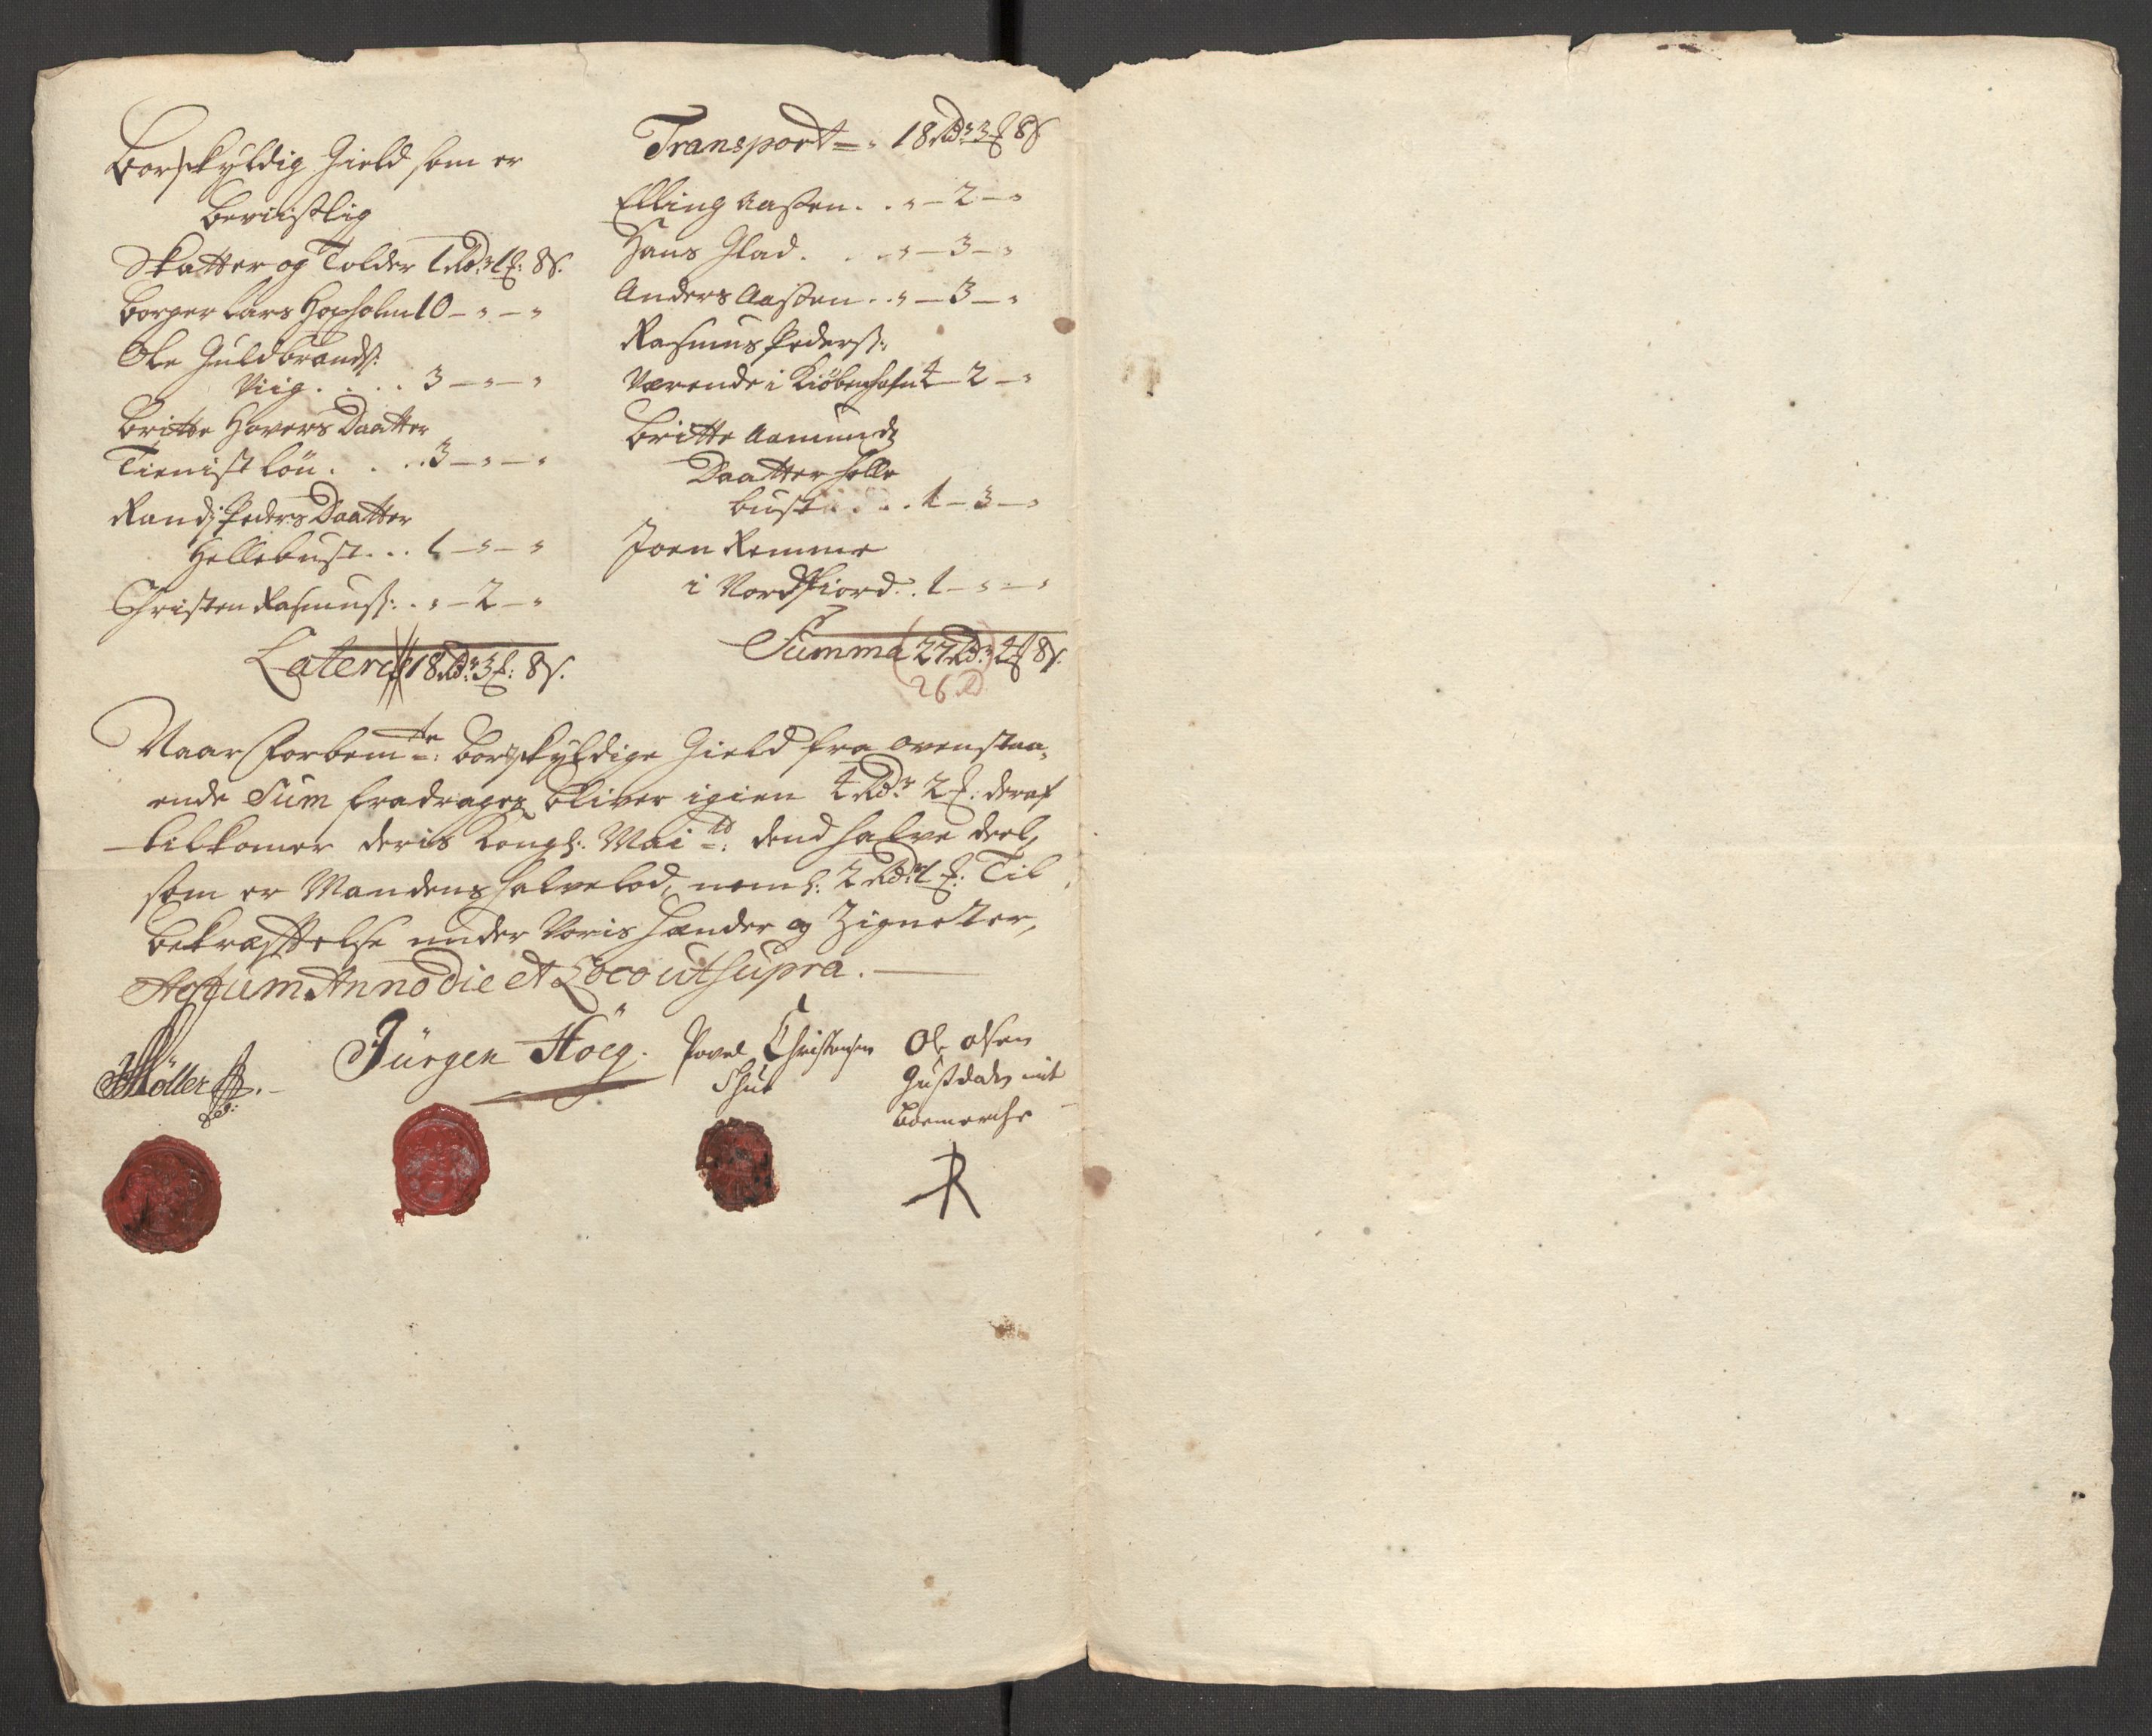 Bortskyldig Gield som er
beviistlig
Skatter og Tolder 1 Rdr 1 ß: 8 s.
Borger Lars Hopholm 10 - " - "
Ole Guldbrands:
Viig . . . . 3 - " - "
Britte Hovers Daatter
Tienist løn . . . 3 - " - "
Randj Peders Daatter
Hellebust . . . 1 - " - "
Christen Rasmuss: . . " - 2 - "
Latere 18 Rdr 3 ß: 8 s.
Transport = " 18 Rdr 3 ß 8 s
Elling Aasten . . " - 2 - "
Hans Glad . . . " - 3 - "
Anders Aasten . . " - 3 - "
Rasmus Peders:
Værende i Kiøbenhafn 4 - 2 - "
Britte Aamunds
Daatter Helle
bust . . . 1 - 3 - "
Joen Remme
i Nordfiord . . 1 - " - "
Summa (27 Rdr) 2 ß 8 s.
26 Rd
Naar forbemte: bortskyldige Gield fra ovenstaa-
ende Sum fradrages bliver igien 4 Rdr 2 ß: deraf
tilkomer deris Kongl: Maitt: dend halve deel,
som er Mandens halve lod, neml: 2 Rdr 1 ß: Til
bekræfftelse under voris Hænder og Zigneter,
Actum Anno die et Loco ut supra.
Möller
Jürgen Höeg.
Povel Christensen
Ole Olsen
Gustdals mit
Boemerche
R